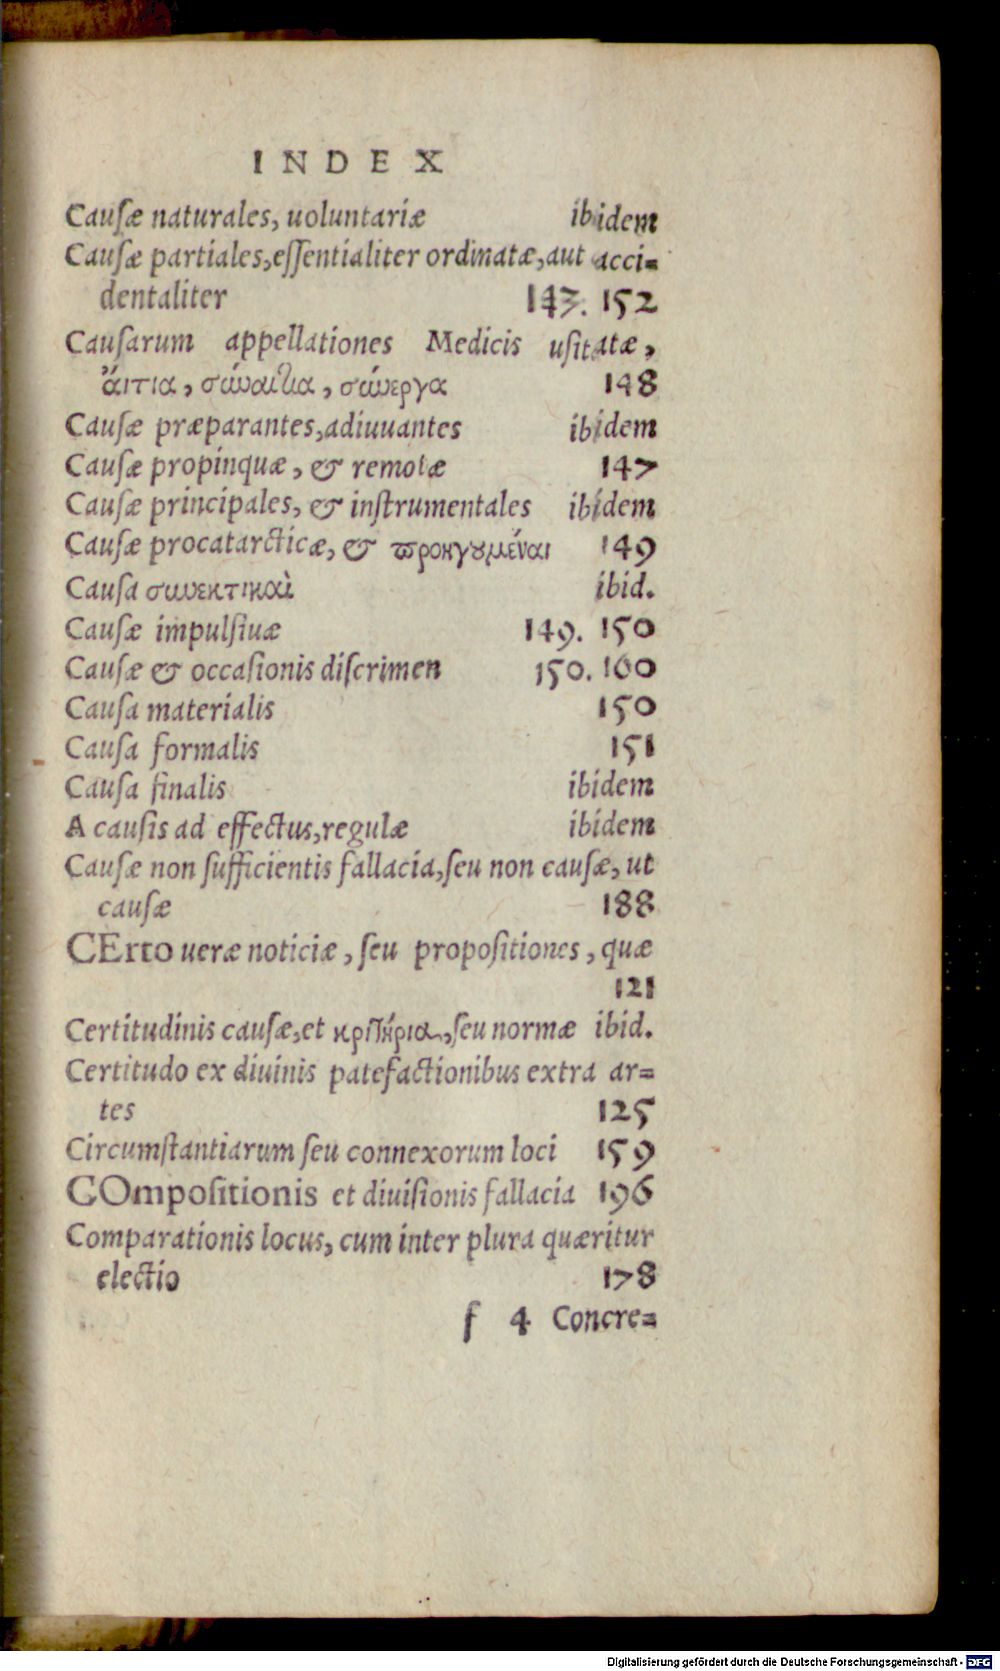 INDEX
Cauſæ naturales, uoluntariæ ibidem
Cauſæ partiales,eſſentialiter ordinatæ,aut acci=
dentaliter 147. 152
Cauſarum appellationes Medicis uſitatæ,
ἄιτια, σύναιτια, σύνεργα 148
Cauſæ præparantes,adiuuantes ibidem
Cauſæ propinquæ, & remotæ 147
Cauſæ principales, & inſtrumentales ibidem
Cauſæ procatarcticæ, & ϖροηγȣμέναι 149
Cauſa συνεκτικαὶ ibid.
Cauſæ impulſiuæ 149. 150
Cauſæ & occaſionis diſcrimen 150. 160
Cauſa materialis 150
Cauſa formalis 151
Cauſa finalis ibidem
A cauſis ad effectus,regulæ ibidem
Cauſæ non ſufficientis fallacia,ſeu non cauſæ, ut
cauſæ 188
CErto ueræ noticiæ, ſeu propoſitiones, quæ
121
Certitudinis cauſæ,et κριτήρια,ſeu normæ ibid.
Certitudo ex diuinis patefactionibus extra ar=
tes 125
Circumſtantiarum ſeu connexorum loci 159
COmpoſitionis et diuiſionis fallacia 196
Comparationis locus, cum inter plura quæritur
electio 178
f 4 Concre=
Digitalisierung gefördert durch die Deutsche Forschungsgemeinschaft - DFG